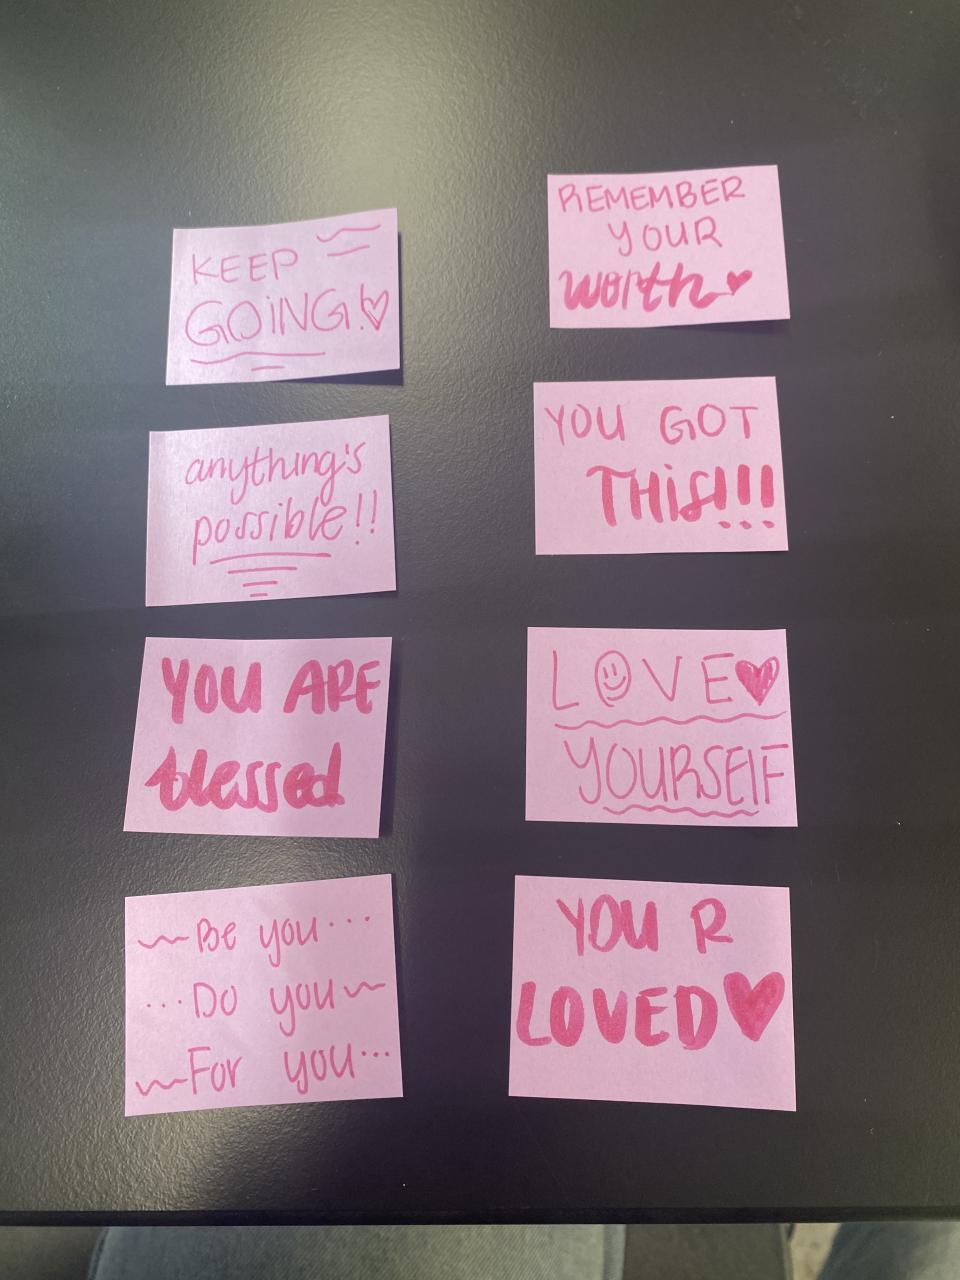 KEEP
GOiNG!♡
anything's
possible!!
YOU ARE
blessed
~Be you...
...Do you~
~For you...
REMEMBER
YOUR
worth♥
YOU GOT
THiS!!!
LOVE♥
YOURSElF
YOU R
LOVED♥